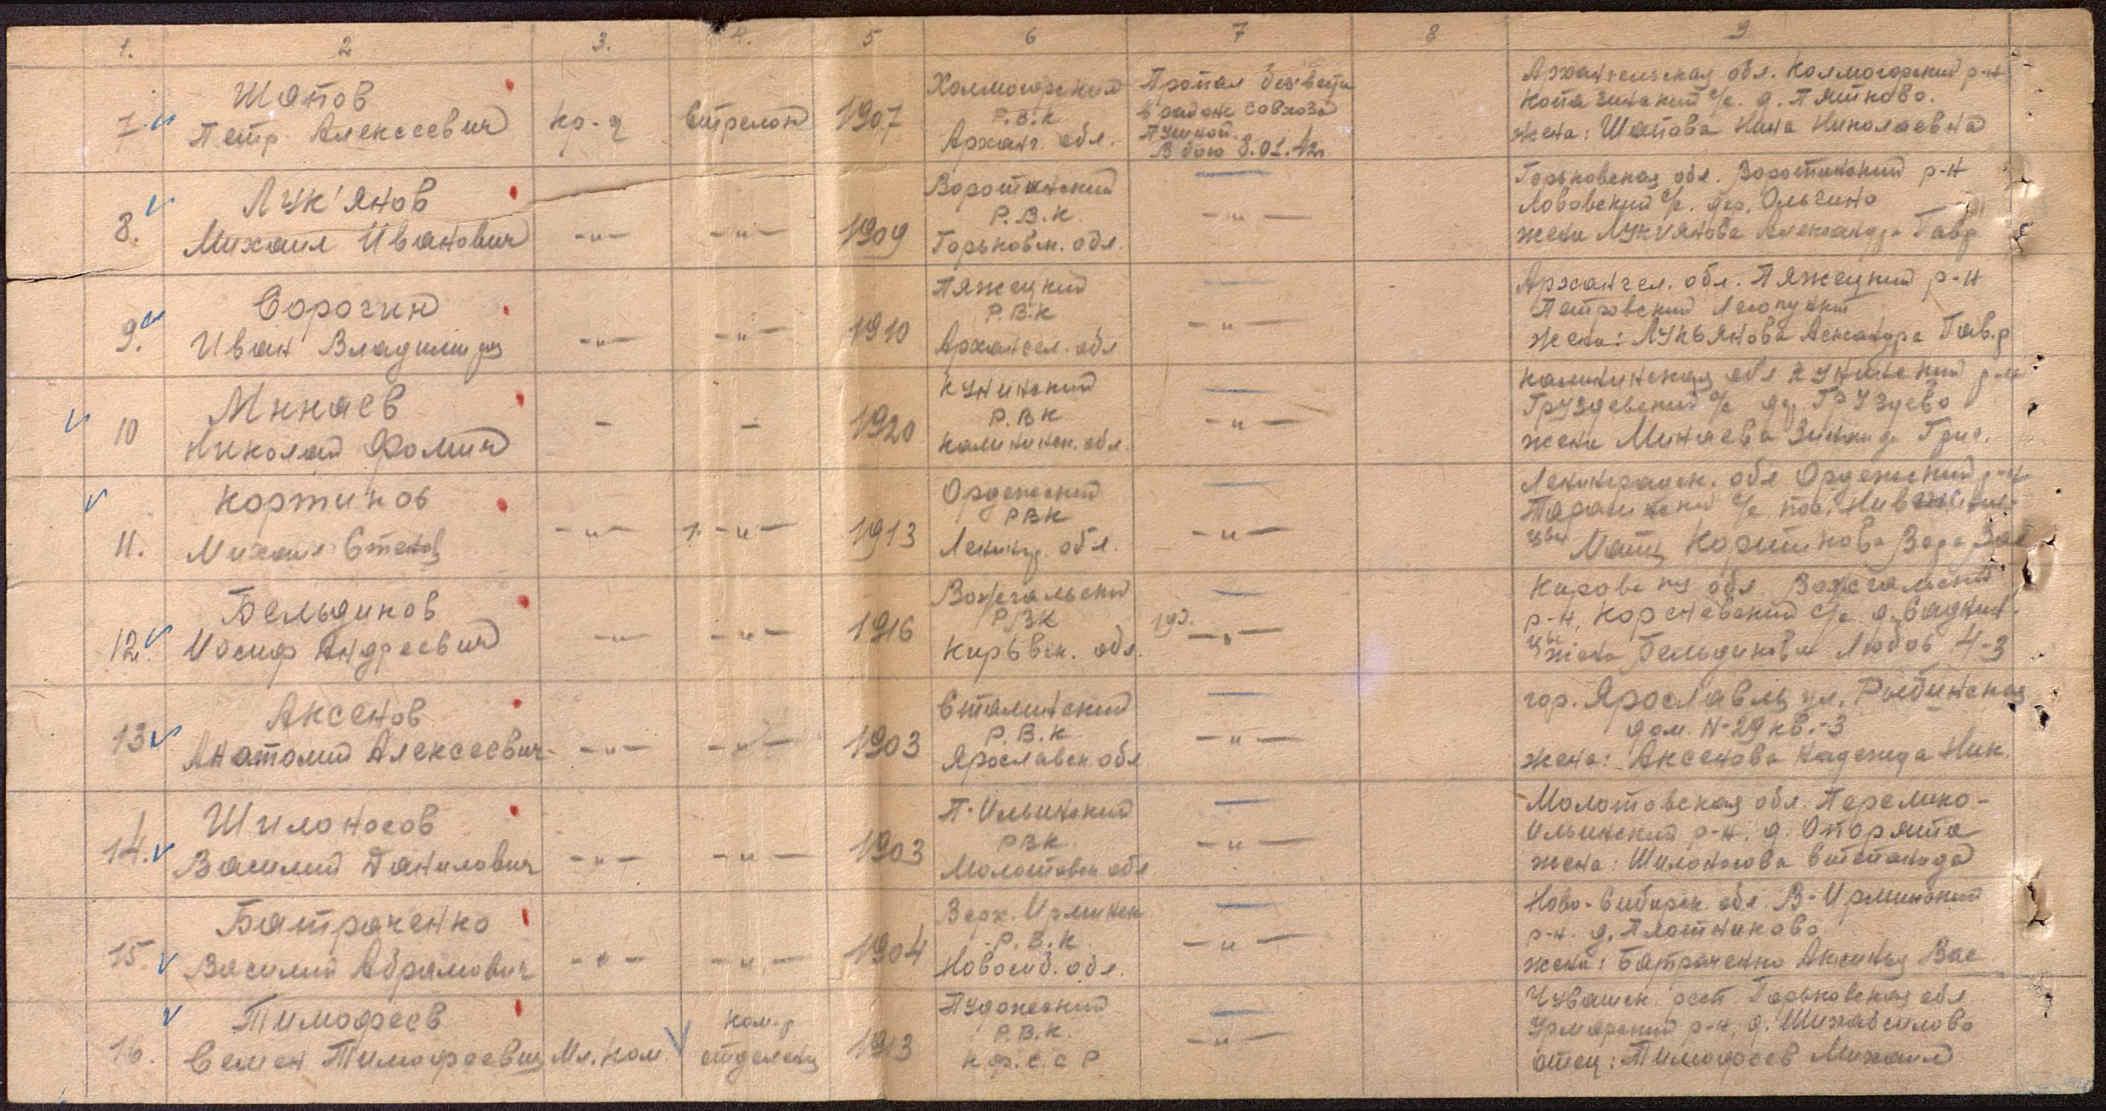 1. 2 3. 4. 5 6 7 8 9
7. Шапов
Петр Алексеевич
кр-ц
Стрелок
1907
Холмогорский
Р.В.К
Арханг. обл.
Пропал без вести
в районе совхоза
Пушной.
В бою 8.01.42г.
Архангельская обл. Холмогорский р-н
с/с. д. Пятково.
жена: Шапова Нина Николаевна
8. Лук'янов
Михаил Иванович
-"-
-"-
1909
Воротынский
Р.В.К.
Горьковск. обл.
-"-
Горьковская обл. Воротынский р-н
с/с. дер. Ольгино
жена Лукиянова Александр Гавр
9. Сорогин
Иван Владимиров
-"-
-"-
1910
Пяжецкий
Р.В.К
Архангел. обл
-"-
Архангел. обл. Пяжецкий р-н
Петровский Лесопункт
жена: Лукьянова Гав.р
10 Минаев
Николай Фомич
-
-
1920
Кунинский
Р.В.К
Калининск. обл.
-"-
Калининская обл Кунинский р-н
Груздевский с/с де Груздево
жена Минаева Зинаид Григ.
11. Кортинов
Михаил Степан
-"-
-"-
1913
Оредежский
РВК
Ленингр. обл.
-"-
Ленинградск. обл Оредежский р-н
с/с пос.
Мать Кортинова Вера Вас
12. Бельдинов
Иосиф Андреевич
-"-
-"-
1916
Вожгальский
РВК
Кировск. обл.
-"-
Кировская обл Вожгальский
р-н, Корсневский с/с д.
жена Бельдинова Любов 4-3
13 Аксенов
Анатолий Алексеевич
-"-
-"-
1903
Сталинский
Р.В.К
Ярославск обл
-"-
гор. Ярославль ул. Рыбинская
дом. N-29 кв.-3
жена: Аксенова Надежда Ник.
14. Шилоносов
Василий Данилович
-"-
-"-
1903
П-Ильинский
РВК
Молотовск обл
-"-
Молотовская обл.
Ильинский р-н. д.
жена: Шилоносова
15. Батраченко
Василий Абрамович
-"-
-"-
1904
Верх. Ирминск
Р.В.К.
Новосиб. обл.
-"-
Ново-Сибирск. обл В-Ирминский
р-н. д. Плотниково
жена: Батраченко Аксинья Вас
16. Тимофеев
Семен Тимофеевич
Мл. ком.
ком-р
отделен
1913
Пудожский
Р.В.К.
К.Ф.С.С Р
-"-
Чувашск. Горьковская обл
Урмарский р-н, д.
отец: Тимофеев Михаил